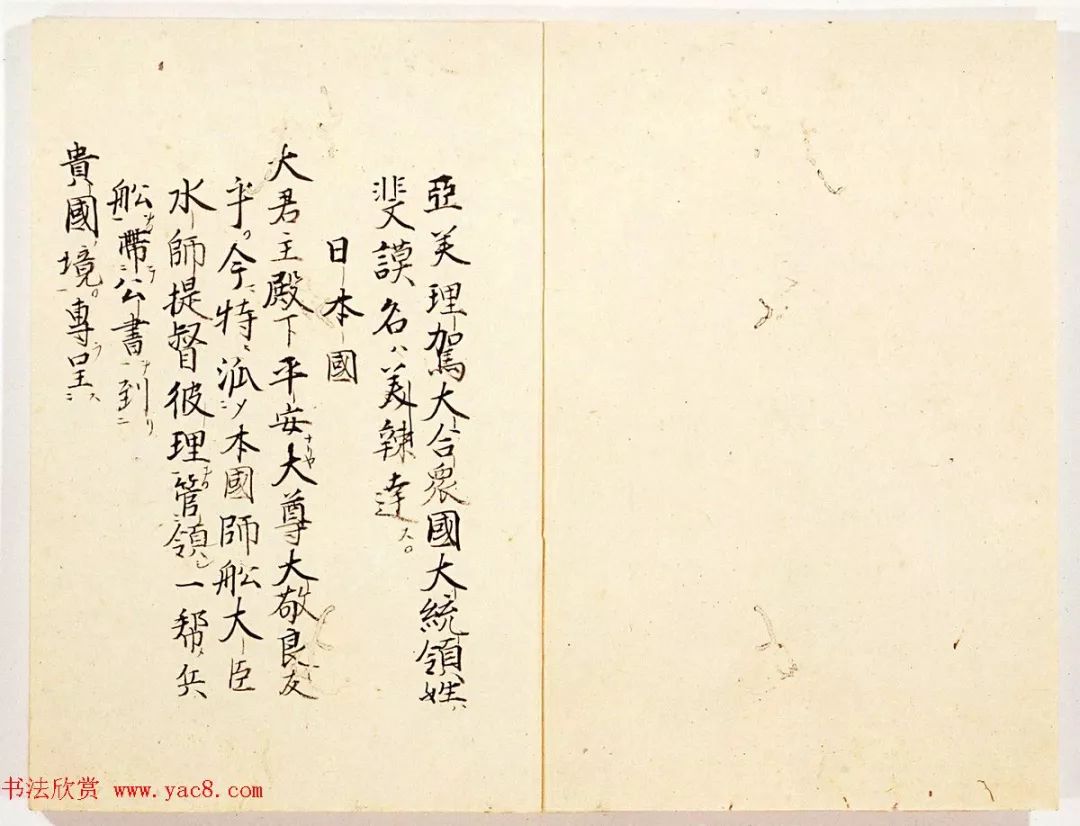 亞美理駕大合衆國大統領姓ハ
斐謨名ハ美辣達ス。
日本國
大君主殿下平安大尊大敬良友
乎。今特ニ泒本國師船大臣
水師提督彼理管領シ一幇兵
船帶公書到リ
貴國境。專ラ呈ス
书法欣赏 www.yac8.com